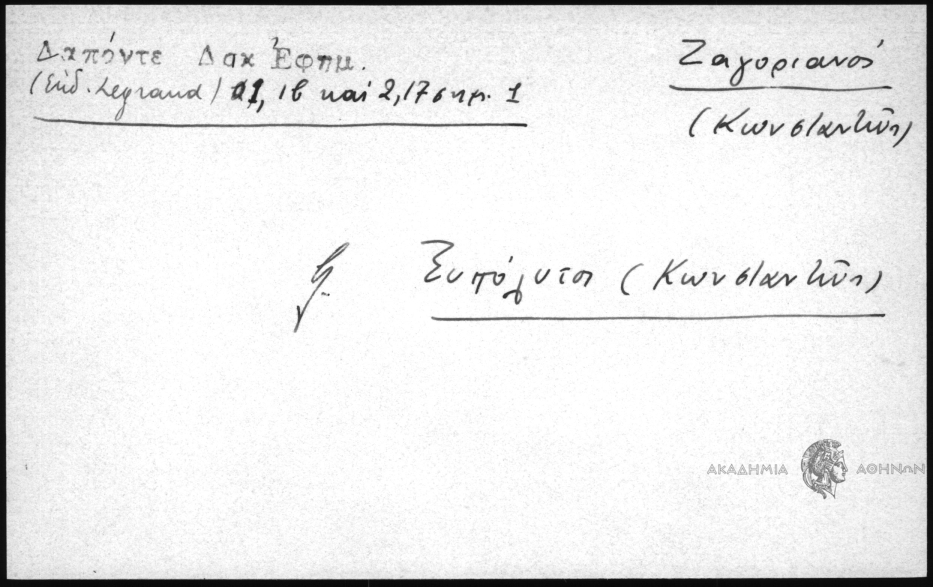 Δαπόντε Δακ Ἐφημ.
(Ἐκδ. Legrand) 1, 16 καὶ 2, 17 σημ. 1
Ζαγοριανός
(Κωνσταντῖνος)
Ξυπόλυτοι (Κωνσταντῖνος)
ΑΚΑΔΗΜΙΑ ΑΘΗΝΩΝ